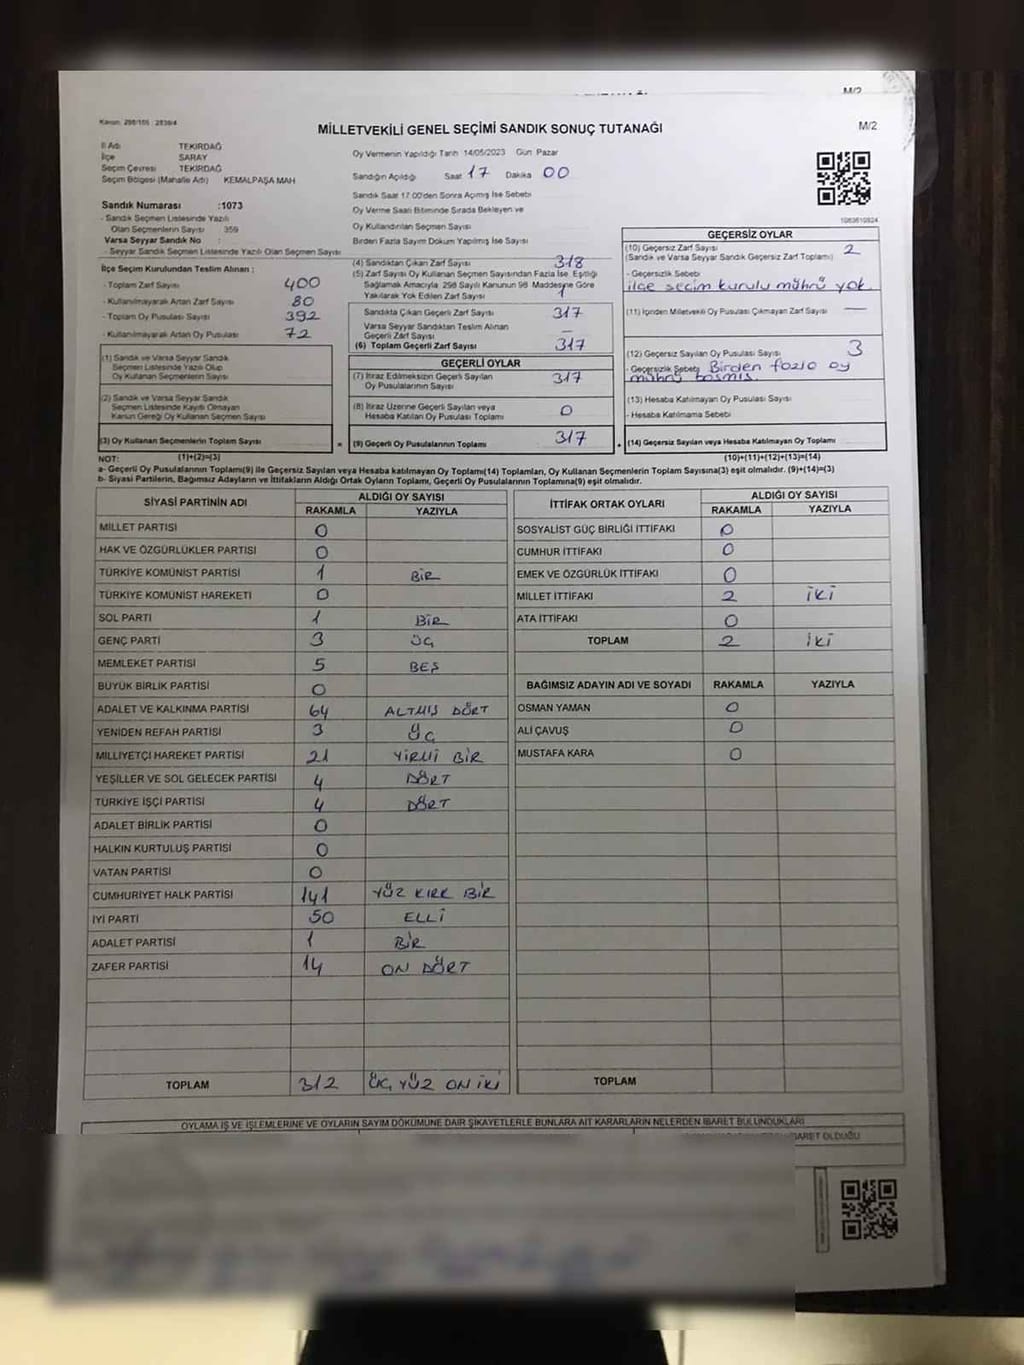 M/2
Kanun: 298/105 : 2839/4
MİLLETVEKİLİ GENEL SEÇİMİ SANDIK SONUÇ TUTANAĞI
M/2
İl Adı TEKİRDAĞ
İlçe SARAY
Seçim Çevresi TEKİRDAĞ
Seçim Bölgesi (Mahalle Adı) KEMALPAŞA MAH
Sandık Numarası :1073
- Sandık Seçmen Listesinde Yazılı
Olan Seçmenlerin Sayısı 359
Varsa Seyyar Sandık No :
- Seyyar Sandık Seçmen Listesinde Yazılı Olan Seçmen Sayısı
Oy Vermenin Yapıldığı Tarih 14/05/2023 Gün Pazar
Sandığın Açıldığı Saat 17 Dakika 00
Sandık Saat 17:00'den Sonra Açımış İse Sebebi
Oy Verme Saati Bitiminde Sırada Bekleyen ve
Oy Kullandırılan Seçmen Sayısı
Birden Fazla Sayım Döküm Yapılmış İse Sayısı
1083610924
İlçe Seçim Kurulundan Teslim Alınan :
- Toplam Zarf Sayısı 400
- Kullanılmayarak Artan Zarf Sayısı 80
- Toplam Oy Pusulası Sayısı 392
- Kullanılmayarak Artan Oy Pusulası 72
(1) Sandık ve Varsa Seyyar Sandık
Seçmen Listesinde Yazılı Olup
Oy Kullanan Seçmenlerin Sayısı
(2) Sandık ve Varsa Seyyar Sandık
Seçmen Listesinde Kayıtlı Olmayan
Kanun Gereği Oy Kullanan Seçmen Sayısı
(3) Oy Kullanan Seçmenlerin Toplam Sayısı
=
(4) Sandıktan Çıkan Zarf Sayısı 318
(5) Zarf Sayısı Oy Kullanan Seçmen Sayısından Fazla İse, Eşitliği
Sağlamak Amacıyla 298 Sayılı Kanunun 98. Maddesine Göre
Yakılarak Yok Edilen Zarf Sayısı 1
Sandıkta Çıkan Geçerli Zarf Sayısı 317
Varsa Seyyar Sandıktan Teslim Alınan
Geçerli Zarf Sayısı —
(6) Toplam Geçerli Zarf Sayısı 317
GEÇERLİ OYLAR
(7) İtiraz Edilmeksizin Geçerli Sayılan
Oy Pusulalarının Sayısı 317
(8) İtiraz Üzerine Geçerli Sayılan veya
Hesaba Katılan Oy Pusulası Toplamı 0
(9) Geçerli Oy Pusulalarının Toplamı 317
+
GEÇERSİZ OYLAR
(10) Geçersiz Zarf Sayısı 2
(Sandık ve Varsa Seyyar Sandık Geçersiz Zarf Toplamı)
- Geçersizlik Sebebi
ilçe seçim kurulu mührü yok.
(11) İçinden Milletvekili Oy Pusulası Çıkmayan Zarf Sayısı —
(12) Geçersiz Sayılan Oy Pusulası Sayısı 3
- Geçersizlik Sebebi Birden fazla oy
mührü basmış.
(13) Hesaba Katılmayan Oy Pusulası Sayısı
- Hesaba Katılmama Sebebi
(14) Geçersiz Sayılan veya Hesaba Katılmayan Oy Toplamı
NOT: (1)+(2)=(3) (10)+(11)+(12)+(13)=(14)
a- Geçerli Oy Pusulalarının Toplamı(9) ile Geçersiz Sayılan veya Hesaba katılmayan Oy Toplamı(14) Toplamları, Oy Kullanan Seçmenlerin Toplam Sayısına(3) eşit olmalıdır. (9)+(14)=(3)
b- Siyasi Partilerin, Bağımsız Adayların ve İttifakların Aldığı Ortak Oyların Toplamı, Geçerli Oy Pusulalarının Toplamına(9) eşit olmalıdır.
SİYASİ PARTİNİN ADI ALDIĞI OY SAYISI
RAKAMLA YAZIYLA
MİLLET PARTİSİ 0
HAK VE ÖZGÜRLÜKLER PARTİSİ 0
TÜRKİYE KOMÜNİST PARTİSİ 1 BİR
TÜRKİYE KOMÜNİST HAREKETİ 0
SOL PARTİ 1 BİR
GENÇ PARTİ 3 ÜÇ
MEMLEKET PARTİSİ 5 BEŞ
BÜYÜK BİRLİK PARTİSİ 0
ADALET VE KALKINMA PARTİSİ 64 ALTMIŞ DÖRT
YENİDEN REFAH PARTİSİ 3 ÜÇ
MİLLİYETÇİ HAREKET PARTİSİ 21 YİRMİ BİR
YEŞİLLER VE SOL GELECEK PARTİSİ 4 DÖRT
TÜRKİYE İŞÇİ PARTİSİ 4 DÖRT
ADALET BİRLİK PARTİSİ 0
HALKIN KURTULUŞ PARTİSİ 0
VATAN PARTİSİ 0
CUMHURİYET HALK PARTİSİ 141 YÜZ KIRK BİR
İYİ PARTİ 50 ELLİ
ADALET PARTİSİ 1 BİR
ZAFER PARTİSİ 14 ON DÖRT
TOPLAM 312 ÜÇ YÜZ ON İKİ
İTTİFAK ORTAK OYLARI ALDIĞI OY SAYISI
RAKAMLA YAZIYLA
SOSYALİST GÜÇ BİRLİĞİ İTTİFAKI 0
CUMHUR İTTİFAKI 0
EMEK VE ÖZGÜRLÜK İTTİFAKI 0
MİLLET İTTİFAKI 2 İKİ
ATA İTTİFAKI 0
TOPLAM 2 İKİ
BAĞIMSIZ ADAYIN ADI VE SOYADI RAKAMLA YAZIYLA
OSMAN YAMAN 0
ALİ ÇAVUŞ 0
MUSTAFA KARA 0
TOPLAM
OYLAMA İŞ VE İŞLEMLERİNE VE OYLARIN SAYIM DÖKÜMÜNE DAİR ŞİKAYETLERLE BUNLARA AİT KARARLARIN NELERDEN İBARET BULUNDUKLARI
İBARET OLDUĞU